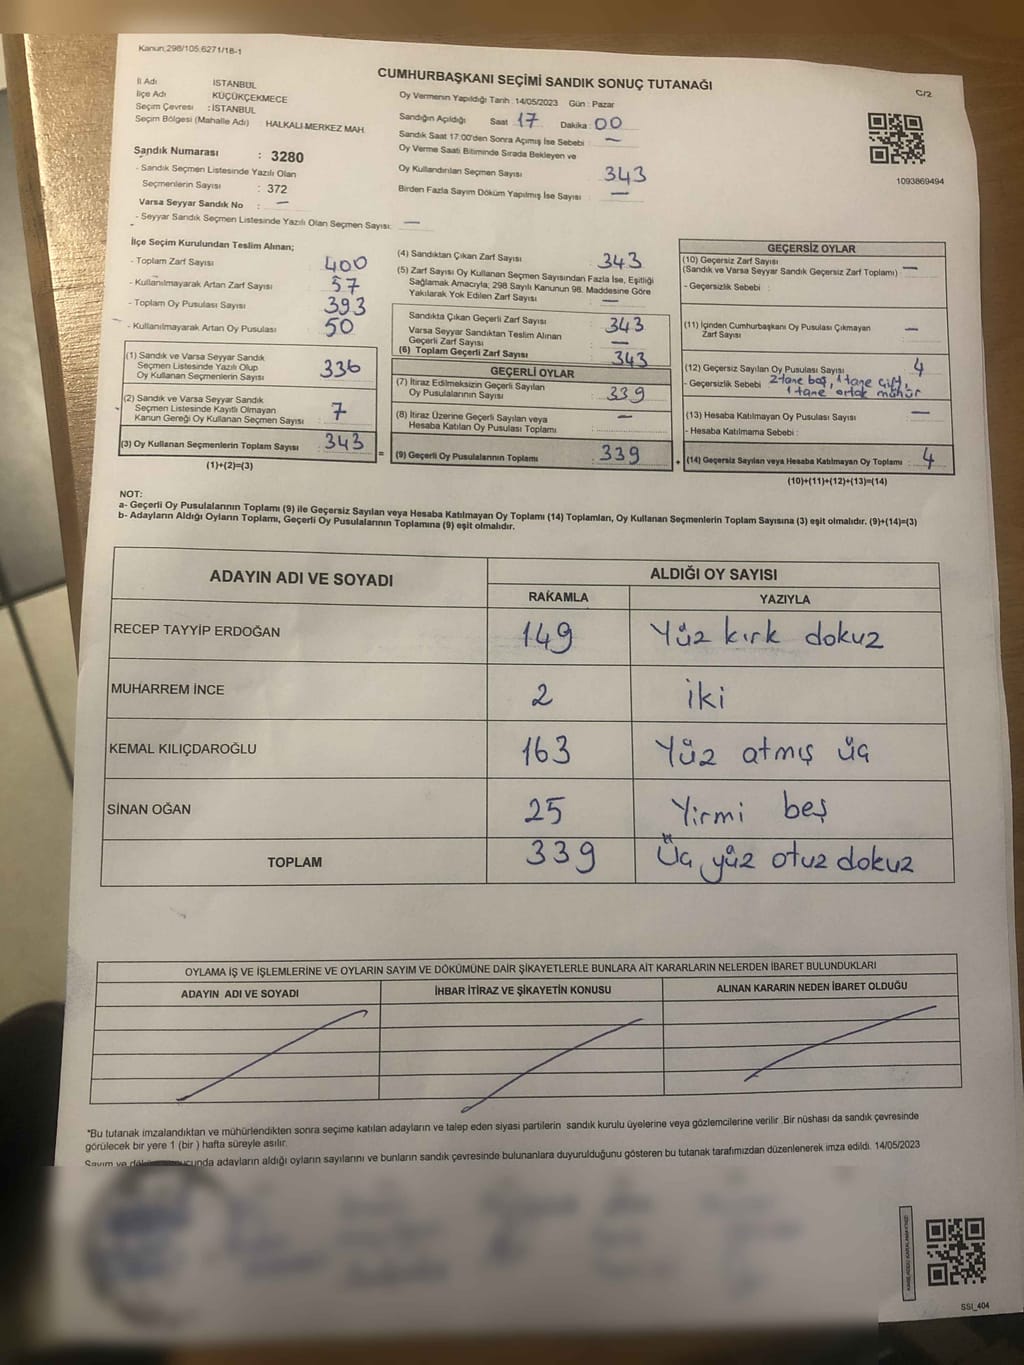 Kanun;298/105;6271/18-1
CUMHURBAŞKANI SEÇİMİ SANDIK SONUÇ TUTANAĞI
C/2
İl Adı İSTANBUL
İlçe Adı KÜÇÜKÇEKMECE
Seçim Çevresi : İSTANBUL
Seçim Bölgesi (Mahalle Adı) HALKALI-MERKEZ MAH.
Sandık Numarası : 3280
- Sandık Seçmen Listesinde Yazılı Olan
Seçmenlerin Sayısı : 372
Varsa Seyyar Sandık No : —
- Seyyar Sandık Seçmen Listesinde Yazılı Olan Seçmen Sayısı: —
Oy Vermenin Yapıldığı Tarih : 14/05/2023 Gün : Pazar
Sandığın Açıldığı Saat 17 Dakika : 00
Sandık Saat 17:00'den Sonra Açımış İse Sebebi : —
Oy Verme Saati Bitiminde Sırada Bekleyen ve
Oy Kullandırılan Seçmen Sayısı 343
Birden Fazla Sayım Döküm Yapılmış İse Sayısı : —
1093869494
İlçe Seçim Kurulundan Teslim Alınan;
- Toplam Zarf Sayısı 400
- Kullanılmayarak Artan Zarf Sayısı : 57
- Toplam Oy Pusulası Sayısı 393
- Kullanılmayarak Artan Oy Pusulası 50
(1) Sandık ve Varsa Seyyar Sandık
Seçmen Listesinde Yazılı Olup
Oy Kullanan Seçmenlerin Sayısı 336
(2) Sandık ve Varsa Seyyar Sandık
Seçmen Listesinde Kayıtlı Olmayan
Kanun Gereği Oy Kullanan Seçmen Sayısı : 7
(3) Oy Kullanan Seçmenlerin Toplam Sayısı : 343
(1)+(2)=(3)
=
(4) Sandıktan Çıkan Zarf Sayısı : 343
(5) Zarf Sayısı Oy Kullanan Seçmen Sayısından Fazla İse, Eşitliği
Sağlamak Amacıyla; 298 Sayılı Kanunun 98. Maddesine Göre
Yakılarak Yok Edilen Zarf Sayısı : —
Sandıkta Çıkan Geçerli Zarf Sayısı : 343
Varsa Seyyar Sandıktan Teslim Alınan
Geçerli Zarf Sayısı : —
(6) Toplam Geçerli Zarf Sayısı : 343
GEÇERLİ OYLAR
(7) İtiraz Edilmeksizin Geçerli Sayılan
Oy Pusulalarının Sayısı : 339
(8) İtiraz Üzerine Geçerli Sayılan veya
Hesaba Katılan Oy Pusulası Toplamı : —
(9) Geçerli Oy Pusulalarının Toplamı : 339
+
GEÇERSİZ OYLAR
(10) Geçersiz Zarf Sayısı
(Sandık ve Varsa Seyyar Sandık Geçersiz Zarf Toplamı) : —
- Geçersizlik Sebebi :
(11) İçinden Cumhurbaşkanı Oy Pusulası Çıkmayan
Zarf Sayısı : —
(12) Geçersiz Sayılan Oy Pusulası Sayısı : 4
- Geçersizlik Sebebi : 2 tane boş, 1 tane çift,
1 tane ortak mühür
(13) Hesaba Katılmayan Oy Pusulası Sayısı : —
- Hesaba Katılmama Sebebi :
(14) Geçersiz Sayılan veya Hesaba Katılmayan Oy Toplamı : 4
(10)+(11)+(12)+(13)=(14)
NOT:
a- Geçerli Oy Pusulalarının Toplamı (9) ile Geçersiz Sayılan veya Hesaba Katılmayan Oy Toplamı (14) Toplamları, Oy Kullanan Seçmenlerin Toplam Sayısına (3) eşit olmalıdır. (9)+(14)=(3)
b- Adayların Aldığı Oyların Toplamı, Geçerli Oy Pusulalarının Toplamına (9) eşit olmalıdır.
ADAYIN ADI VE SOYADI ALDIĞI OY SAYISI
RAKAMLA YAZIYLA
RECEP TAYYİP ERDOĞAN 149 Yüz kırk dokuz
MUHARREM İNCE 2 iki
KEMAL KILIÇDAROĞLU 163 Yüz atmış üç
SİNAN OĞAN 25 Yirmi beş
TOPLAM 339 Üç yüz otuz dokuz
OYLAMA İŞ VE İŞLEMLERİNE VE OYLARIN SAYIM VE DÖKÜMÜNE DAİR ŞİKAYETLERLE BUNLARA AİT KARARLARIN NELERDEN İBARET BULUNDUKLARI
ADAYIN ADI VE SOYADI İHBAR İTİRAZ VE ŞİKAYETİN KONUSU ALINAN KARARIN NEDEN İBARET OLDUĞU
"Bu tutanak imzalandıktan ve mühürlendikten sonra seçime katılan adayların ve talep eden siyasi partilerin sandık kurulu üyelerine veya gözlemcilerine verilir. Bir nüshası da sandık çevresinde
görülecek bir yere 1 (bir) hafta süreyle asılır.
Sayım ve adayların aldığı oyların sayılarını ve bunların sandık çevresinde bulunanlara duyurulduğunu gösteren bu tutanak tarafımızdan düzenlenerek imza edildi. 14/05/2023
SSI_404